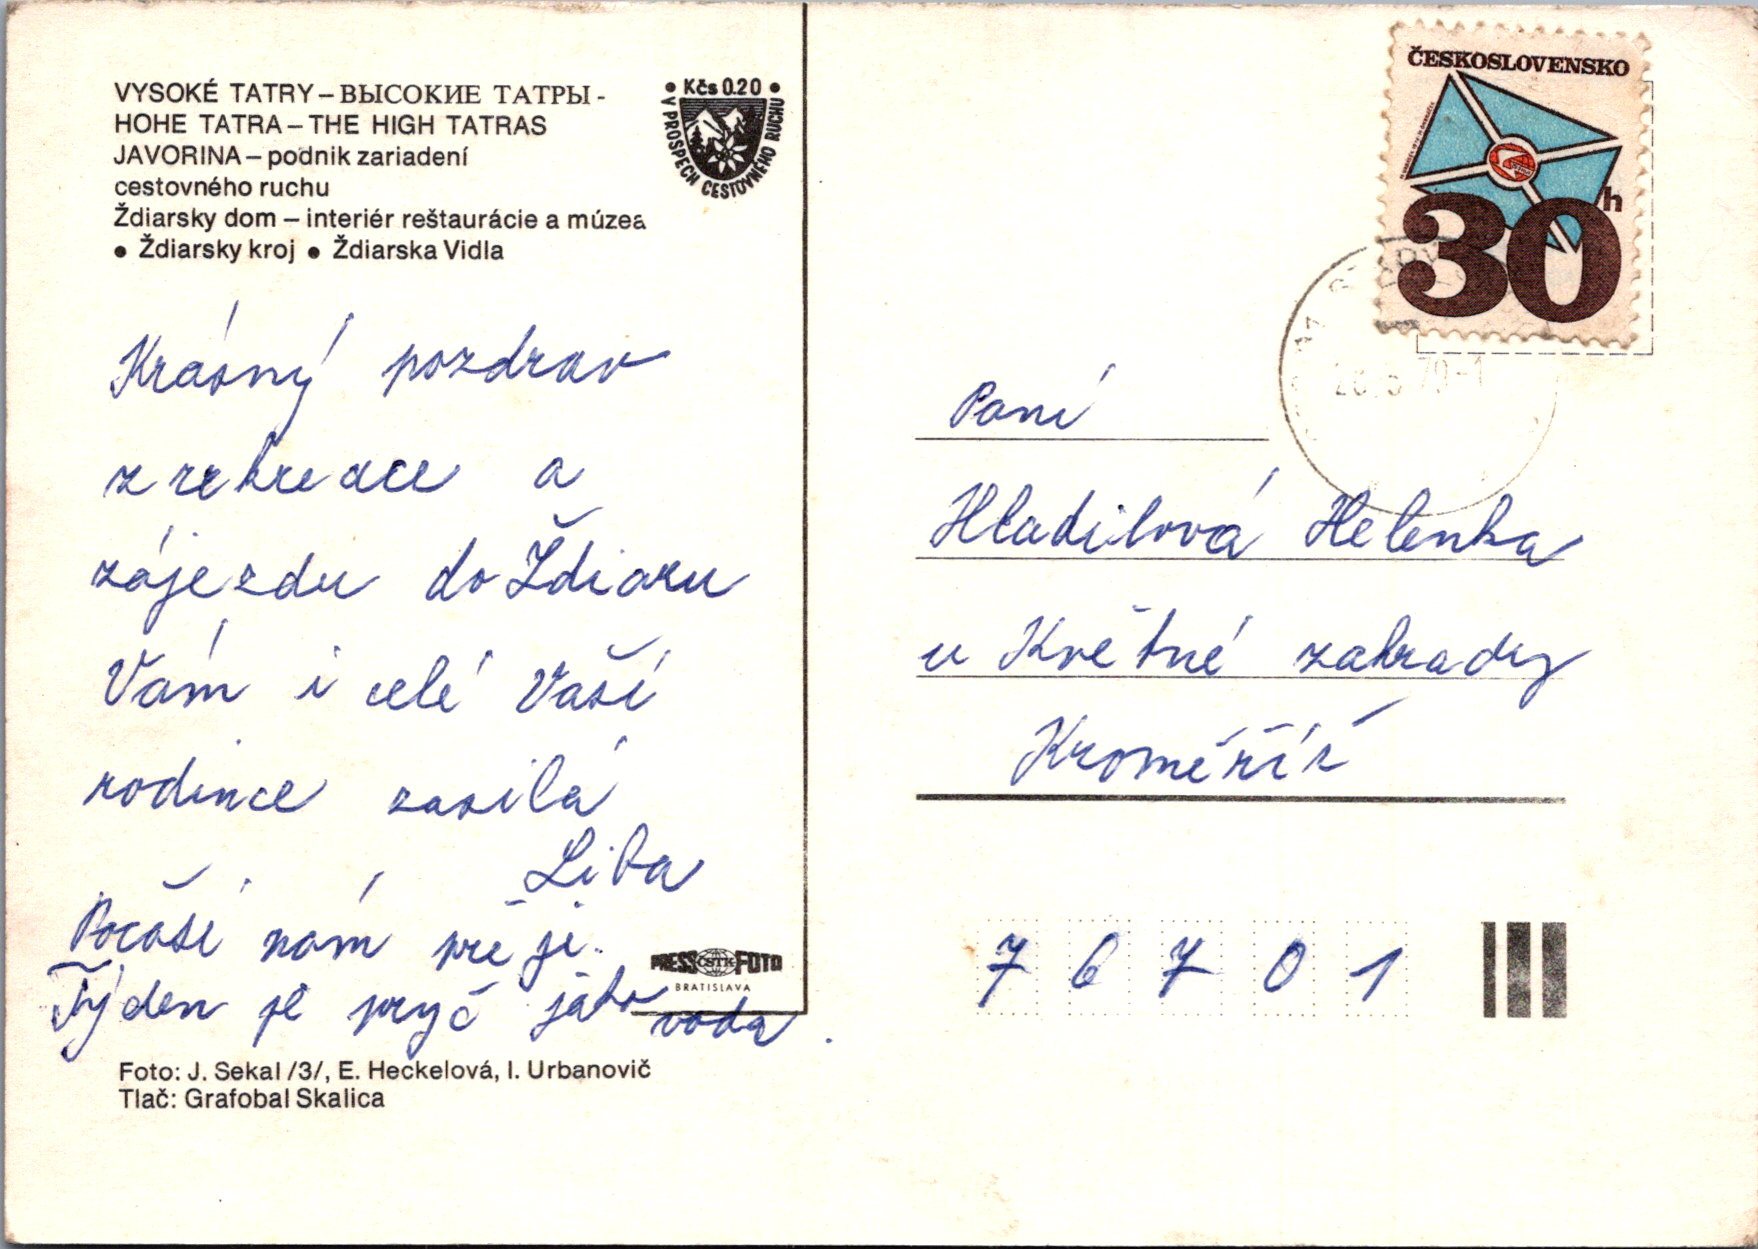 VYSOKÉ TATRY – ВЫСОКИЕ ТАТРЫ -
HOHE TATRA – THE HIGH TATRAS
JAVORINA – podnik zariadení
cestovného ruchu
Ždiarsky dom – interiér reštaurácie a múzea
● Ždiarsky kroj ● Ždiarska Vidla
● Kčs 0.20 ●
V PROSPECH CESTOVNÉHO RUCHU
Krásný pozdrav
z rekreace a
zájezdu do Ždiaru
Vám i celé Vaší
rodince zasílá
Liba
Počasí nám přeje.
Týden je pryč jako voda.
PRESS ČSTK FOTO
BRATISLAVA
Foto: J. Sekal /3/, E. Heckelová, I. Urbanovič
Tlač: Grafobal Skalica
ČESKOSLOVENSKO
30 h
79-1
Paní
Hladilová Helenka
u Květné zahrady
Kroměříž
7 6 7 0 1